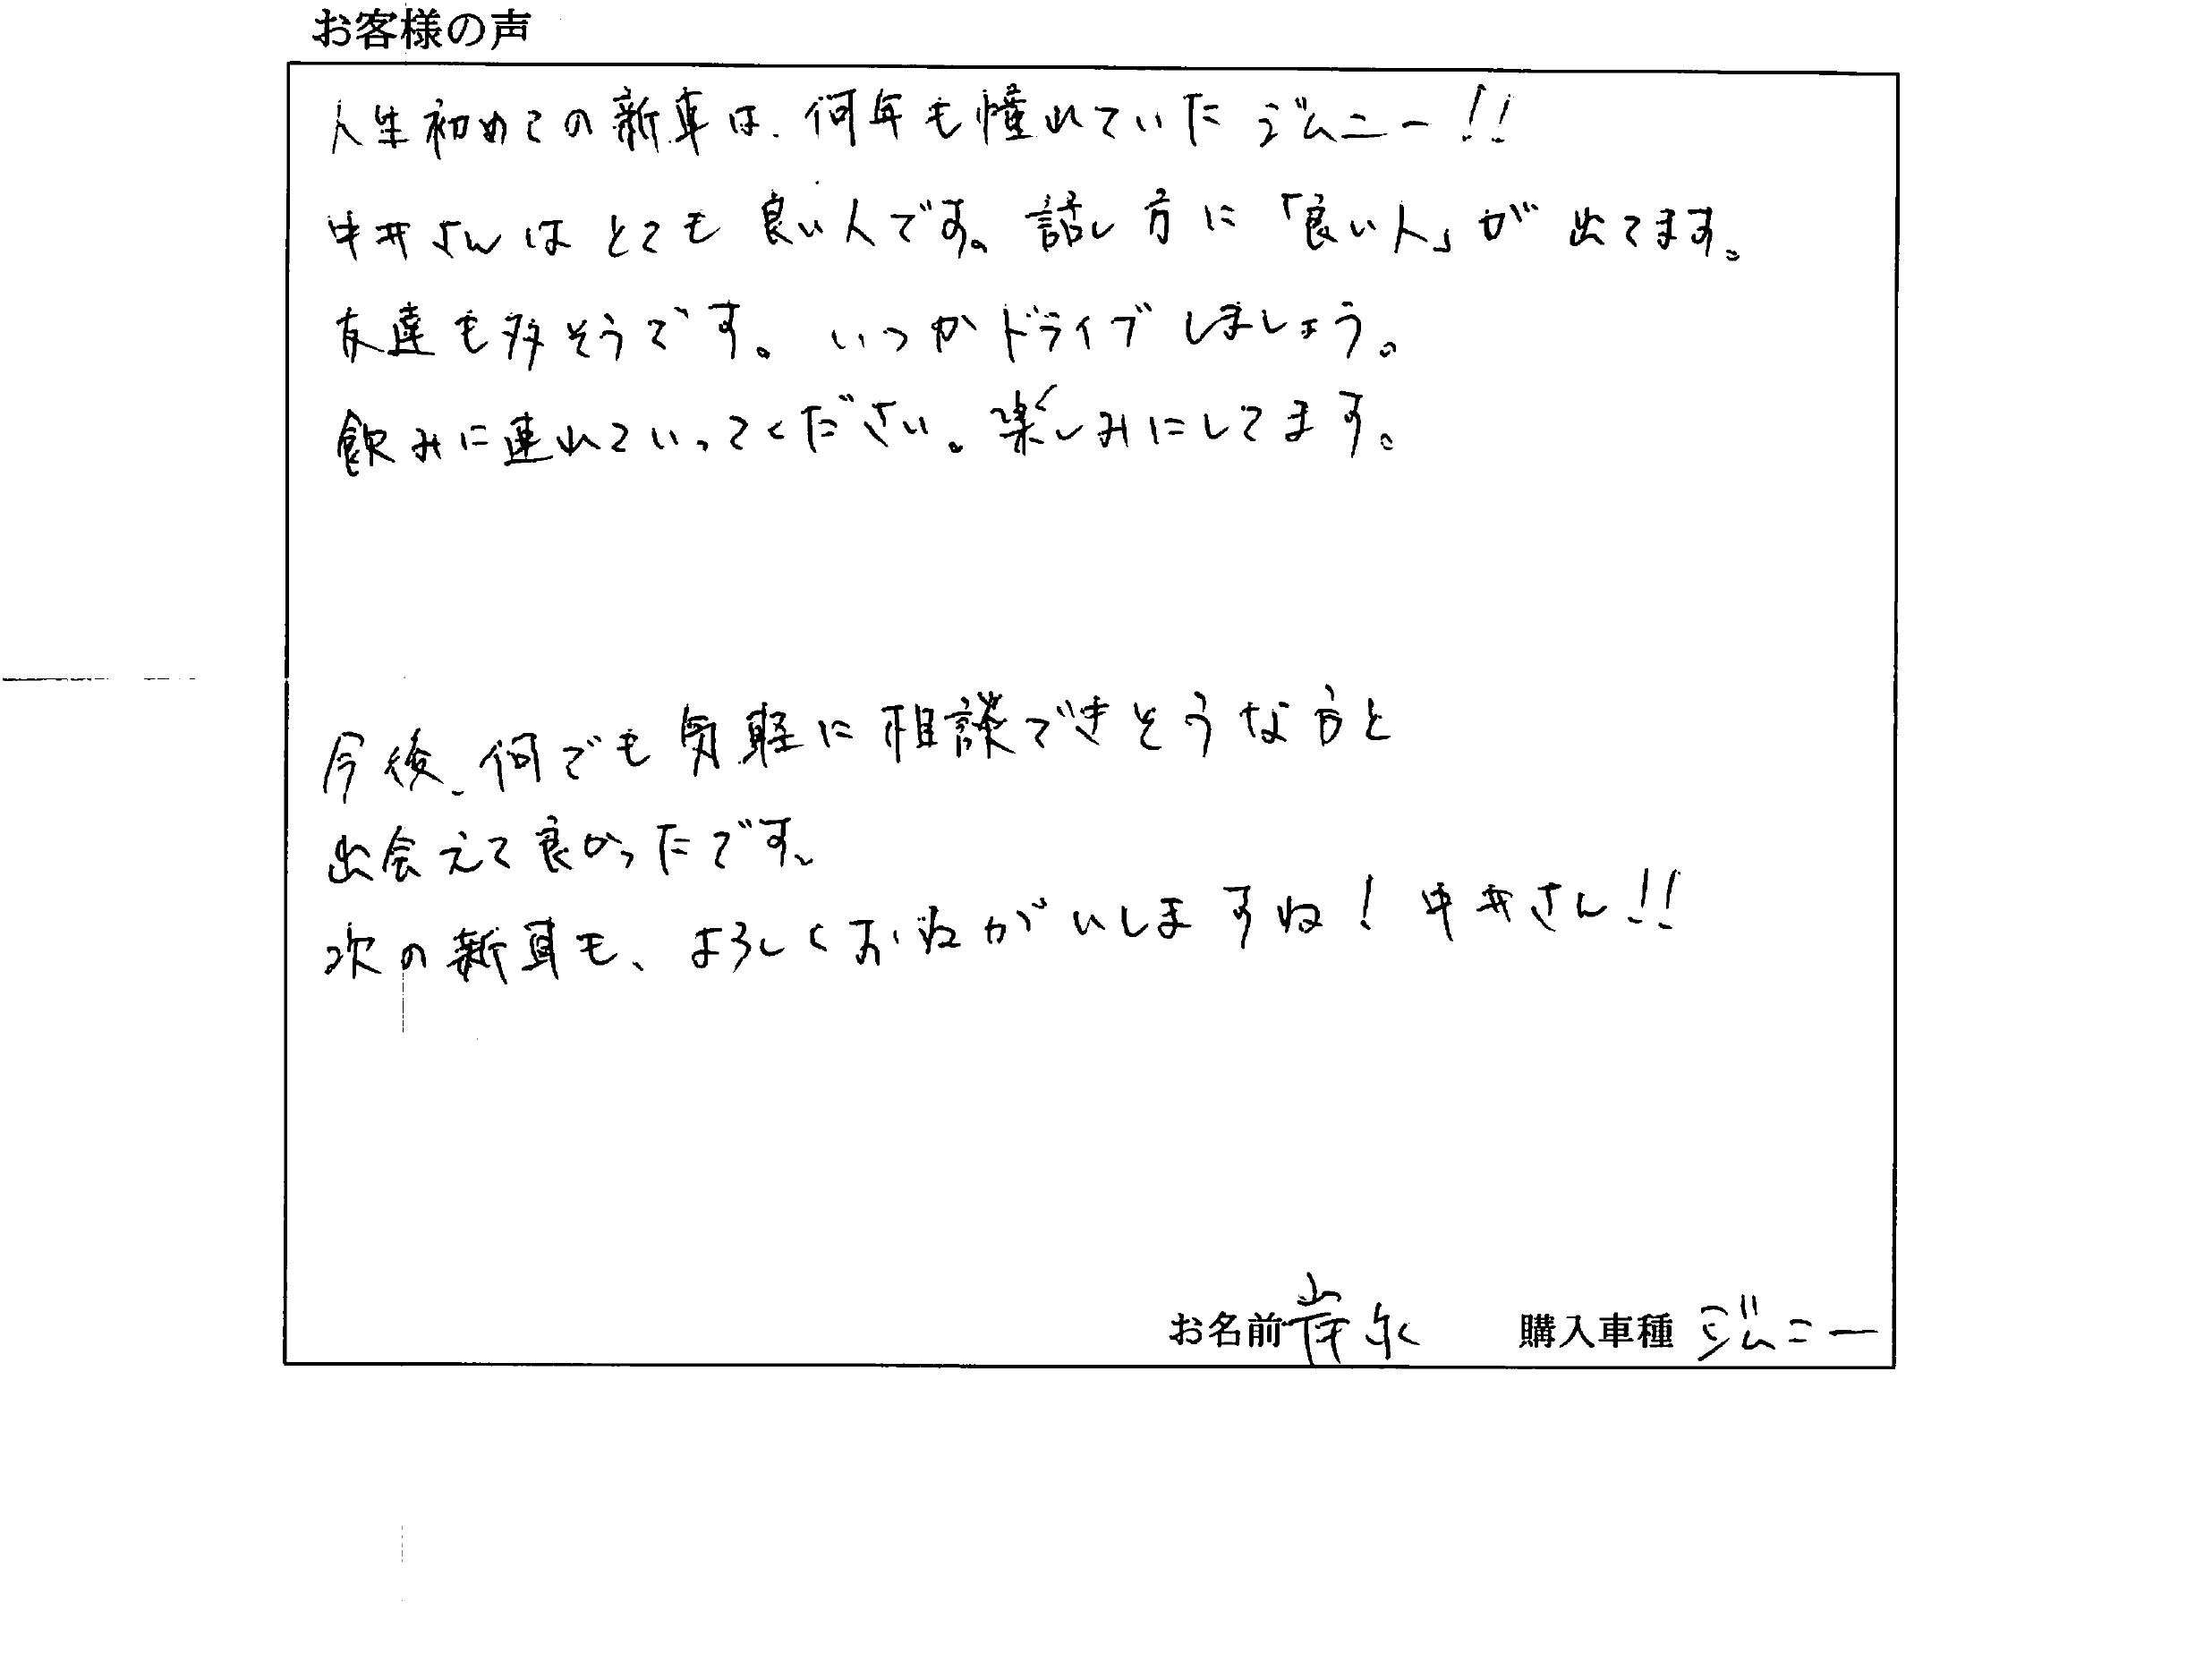 お客様の声
人生初めての新車は、何年も憧れていたジムニー!!
中井さんはとても良い人です。話し方に「良い人」が出てます。
友達も多そうです。いつかドライブしましょう。
飲みに連れていってください。楽しみにしてます。
今後、何でも気軽に相談できそうな方と
出会えて良かったです。
次の新車も、よろしくおねがいしますね!中井さん!!
お名前 岸永 購入車種 ジムニー